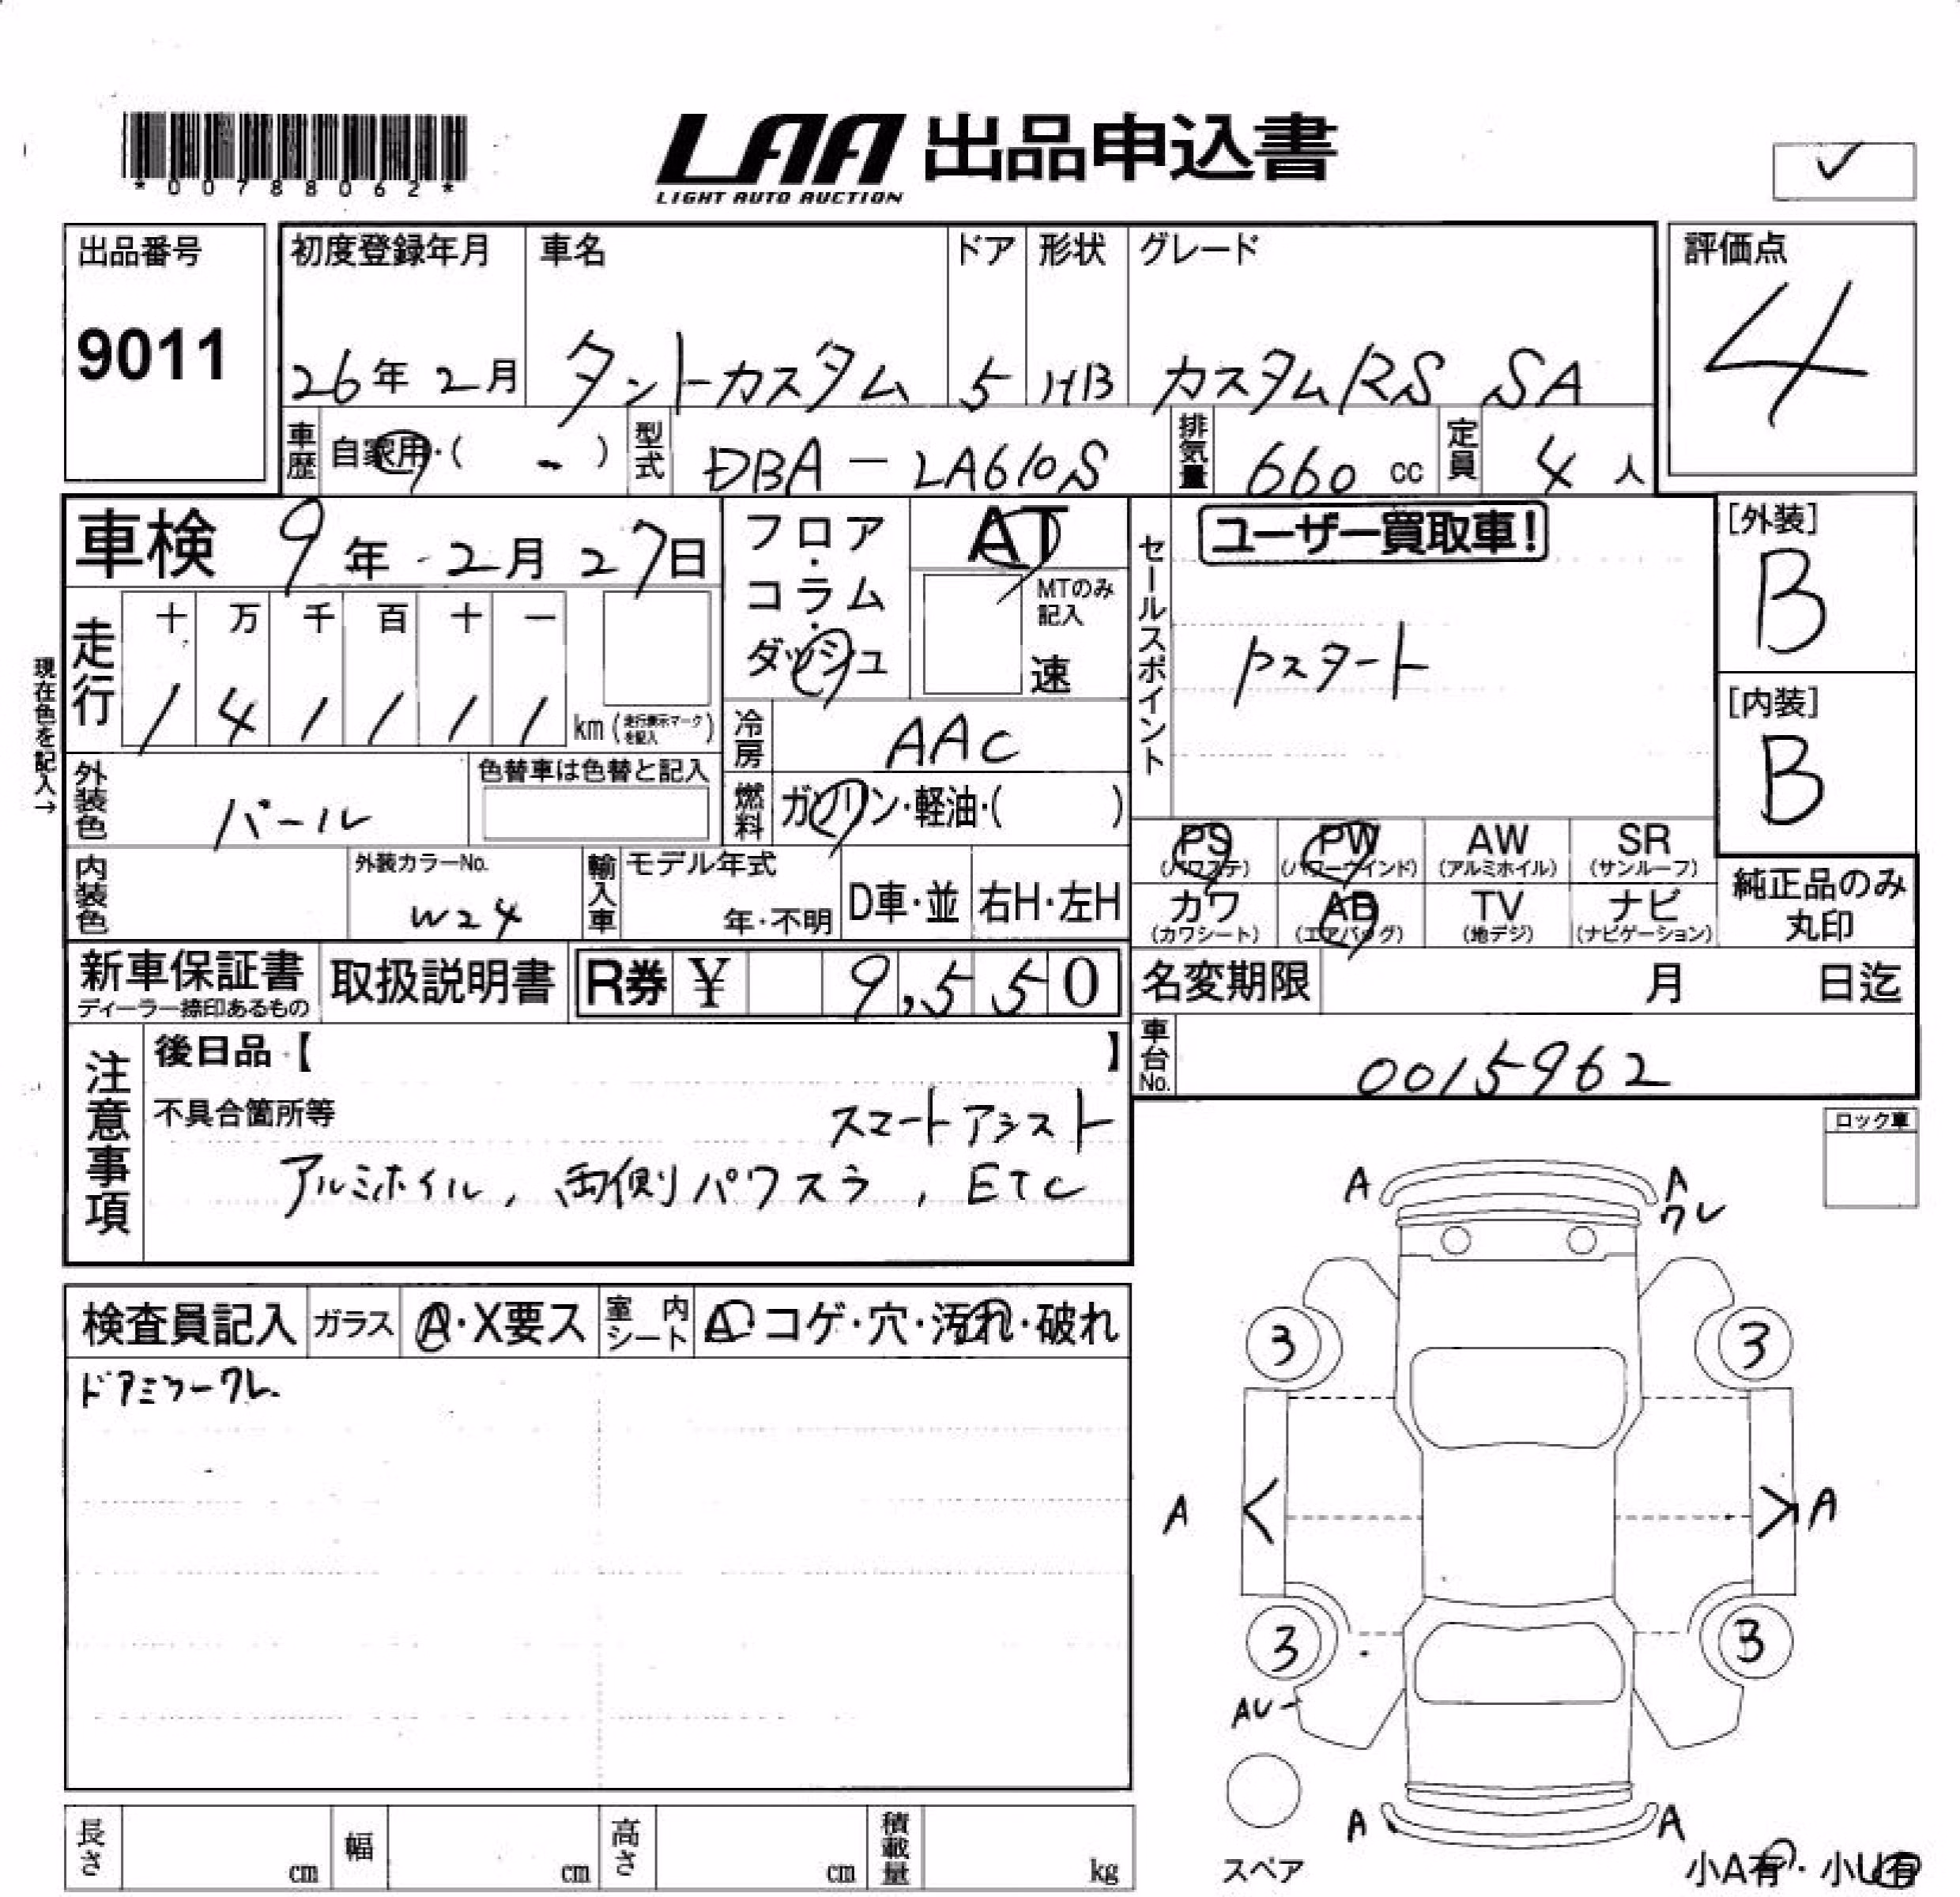 *00788062*
LAA 出品申込書
LIGHT AUTO AUCTION
✓
出品番号
9011
初度登録年月 車名 ドア 形状 グレード
26年 2月 タントカスタム 5 HB カスタムRS SA
評価点
4
車歴 自家用・( - ) 型式 DBA-LA610S 排気量 660 cc 定員 4 人
車検 9年 2月 27日
フロア・コラム・ダッシュ
AT
MTのみ記入
速
セールスポイント
ユーザー買取車!
Pスタート
[外装]
B
[内装]
B
現在色を記入→
走行 十 万 千 百 十 一
1 4 1 1 1 1 km (走行表示マークを記入)
冷房 AAC
外装色 パール 色替車は色替と記入
燃料 ガソリン・軽油・( )
内装色 外装カラーNo. W24
輸入車 モデル年式 年・不明 D車・並 右H・左H
PS (パワステ) PW (パワーウィンド) AW (アルミホイル) SR (サンルーフ)
カワ (カワシート) AB (エアバッグ) TV (地デジ) ナビ (ナビゲーション)
純正品のみ丸印
新車保証書 ディーラー捺印あるもの 取扱説明書 R券 ¥ 9,550
名変期限 月 日迄
車台No. 0015962
注意事項
後日品【 】
不具合箇所等 スマートアシスト
アルミホイル, 両側パワスラ, ETC
ロック車
検査員記入 ガラス A・X要ス 室内シート A・コゲ・穴・汚れ・破れ
ドアミラークレ
A A
クレ
3 3
A < > A
3 3
AU
A A
スペア
小A有・小U有
長さ cm 幅 cm 高さ cm 積載量 kg